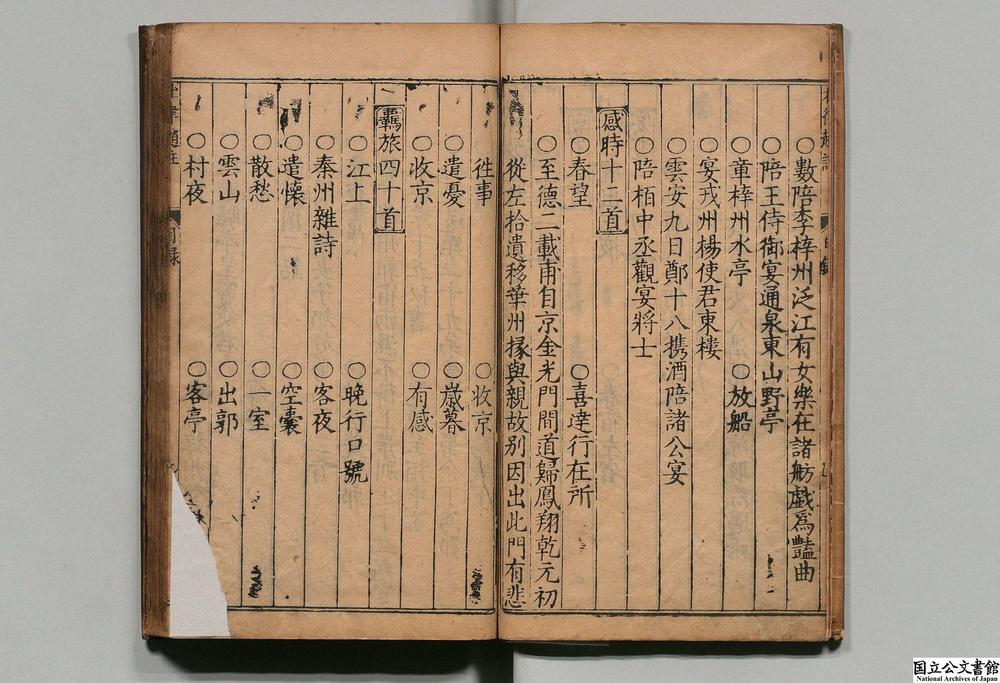 ○數陪李梓州泛江有女樂在諸舫戯爲豔曲
○陪王侍御宴通泉東山野亭
○章梓州水亭 ○放船
○宴戎州楊使君東樓
○雲安九日鄭十八携酒陪諸公宴
○陪栢中丞觀宴將士
感時十二首
○春望 ○喜達行在所
○至德二載甫自京金光門間道歸鳳翔乾元初
從左拾遺移華州掾與親故别因出此門有悲
徃事 ○收京
○遣憂 ○嵗暮
○收京 ○有感
羇旅四十首
○江上 ○晚行口號
○秦州雜詩 ○客夜
○遣懷 ○空囊
○散愁 ○一室
○雲山 ○出郭
○村夜 ○客亭
目録
国立公文書館
National Archives of Japan